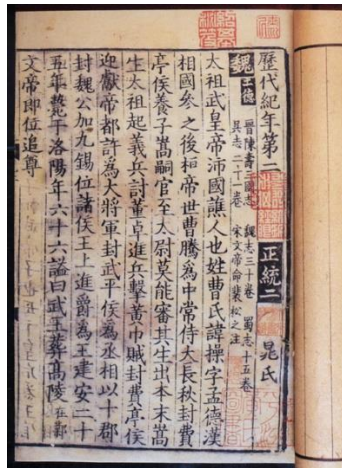 歷代紀年第二 正統二 晁氏
魏 土德 晉陳壽三國志 魏志三十卷 蜀志十五卷
吳志二十一卷 宋文帝命裴松之注
太祖武皇帝沛國譙人也姓曹氏諱操字孟德漢
相國參之後桓帝世曹騰為中常侍大長秋封費
亭侯養子嵩嗣官至太尉莫能審其生出本末嵩
生太祖起義兵討董卓進兵擊黃巾賊封費亭侯
迎獻帝都許為大將軍封武平侯為丞相以十郡
封魏公加九錫位諸侯王上進爵為王建安二十
五年薨于洛陽年六十六謚曰武王葬高陵在鄴
文帝即位追尊